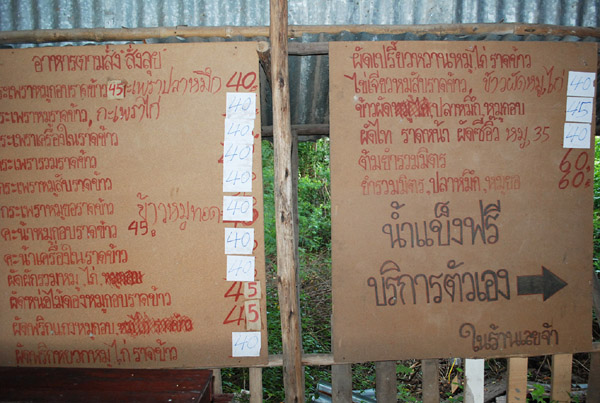 อาหารตามสั่ง สั่งลุย
กะเพราหมูกอบราดข้าว 45 กะเพราปลาหมึก 40
กะเพราหมูราดข้าว, กะเพราไก่ 40
กะเพราเครื่องในราดข้าว 40
กะเพรารวมราดข้าว 40
กะเพราหมูสับราดข้าว 40
กระเพราหมูกรอบราดข้าว ข้าวหมูทอด 40
คะน้าหมูกอบราดข้าว 45 40
คะน้าเครื่องในราดข้าว
ผัดผักรวมหมู ไก่ 40
ผัดหน่อไม้ดองหมูกอบราดข้าว 45
ผัดพริกแกงหมูกอบ 45
ผัดพริกหยวกหมู ไก่ ราดข้าว 40
ผัดเปรี้ยวหวานหมู ไก่ ราดข้าว
ไข่เจียวหมูสับราดข้าว, ข้าวผัดหมู, ไก่ 40
ข้าวผัด ปลาหมึก, หมูกอบ 45
ผัดไท ราดหน้า ผัดซีอิ๊ว หมู, 35 40
ต้มยำรวมมิตร 60
ยำรวมมิตร, ปลาหมึก, 60
น้ำแข็งฟรี
บริการตัวเอง
ในร้านเลยจ้า